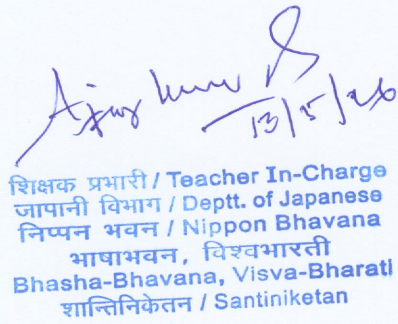 Ajay Kumar
13/5/26
शिक्षक प्रभारी / Teacher In-Charge
जापानी विभाग / Deptt. of Japanese
निप्पन भवन / Nippon Bhavana
भाषाभवन, विश्वभारती
Bhasha-Bhavana, Visva-Bharati
शान्तिनिकेतन / Santiniketan